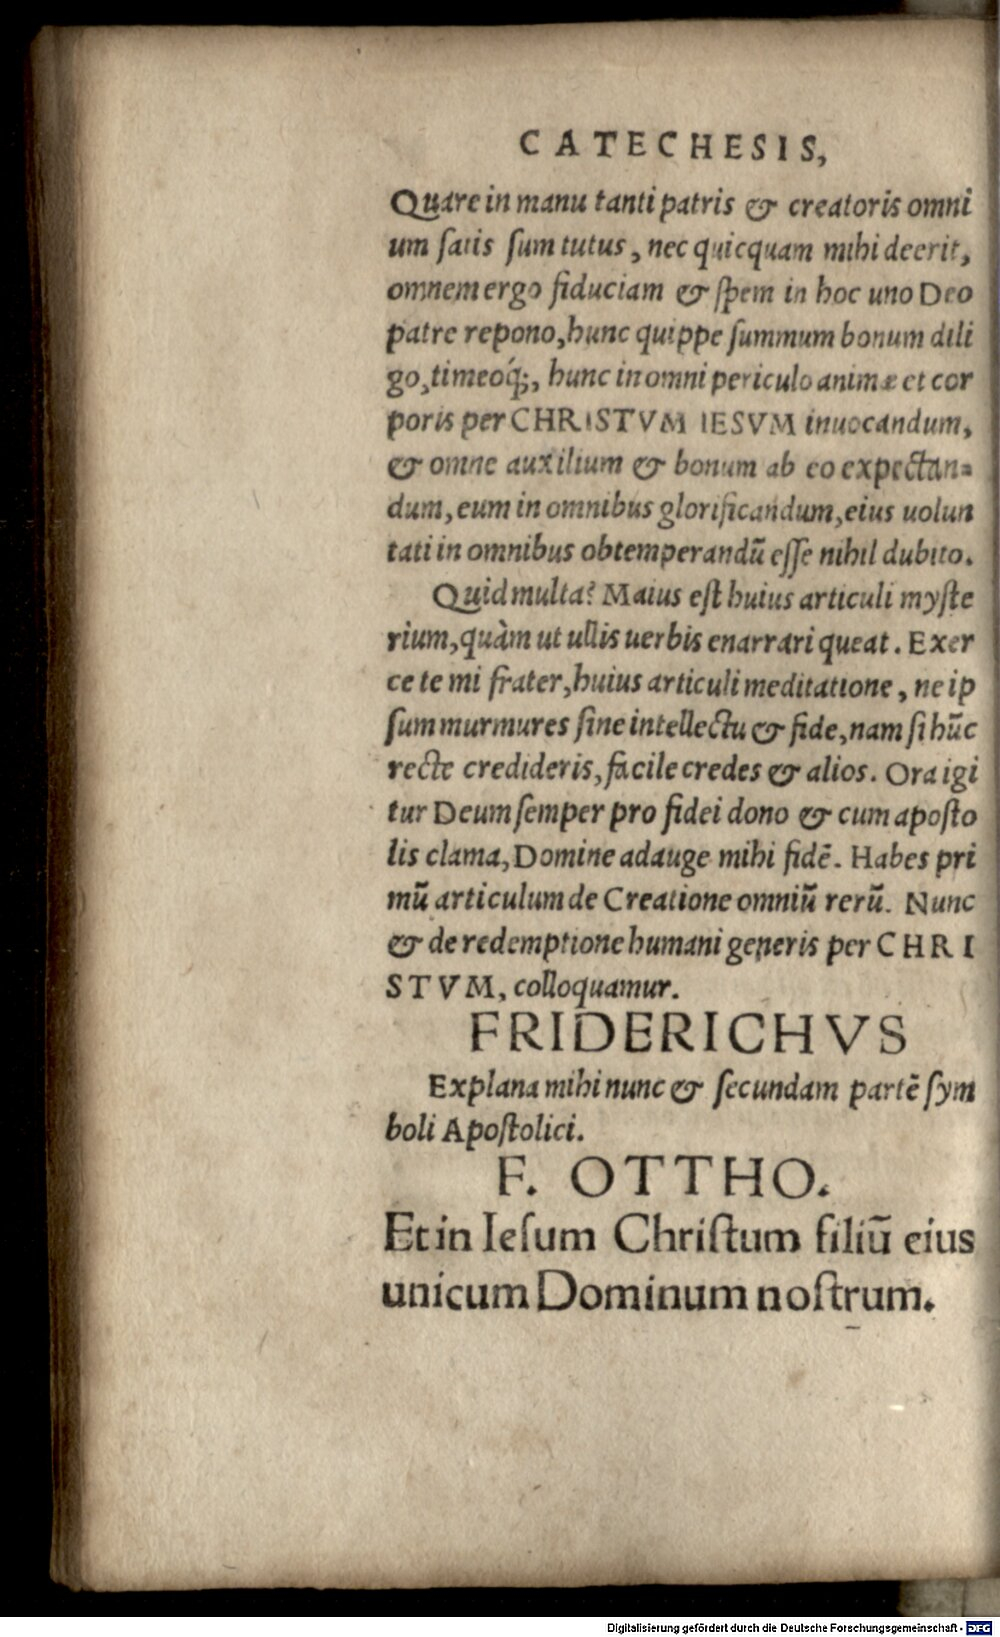 CATECHESIS,
Quare in manu tanti patris & creatoris omni
um satis sum tutus, nec quicquam mihi deerit,
omnem ergo fiduciam & spem in hoc uno Deo
patre repono, hunc quippe summum bonum dili
go, timeoq́;, hunc in omni periculo animæ et cor
poris per CHRISTVM IESVM inuocandum,
& omne auxilium & bonum ab eo expectan=
dum, eum in omnibus glorificandum, eius uolun
tati in omnibus obtemperandū esse nihil dubito.
Quid multa? Maius est huius articuli myste
rium, quàm ut ullis uerbis enarrari queat. Exer
ce te mi frater, huius articuli meditatione, ne ip
sum murmures sine intellectu & fide, nam si hūc
recte credideris, facile credes & alios. Ora igi
tur Deum semper pro fidei dono & cum aposto
lis clama, Domine adauge mihi fidē. Habes pri
mū articulum de Creatione omniū rerū. Nunc
& de redemptione humani generis per CHRI
STVM, colloquamur.
FRIDERICHVS
Explana mihi nunc & secundam partē sym
boli Apostolici.
F. OTTHO.
Et in Iesum Christum filiū eius
unicum Dominum nostrum.
Digitalisierung gefördert durch die Deutsche Forschungsgemeinschaft - DFG